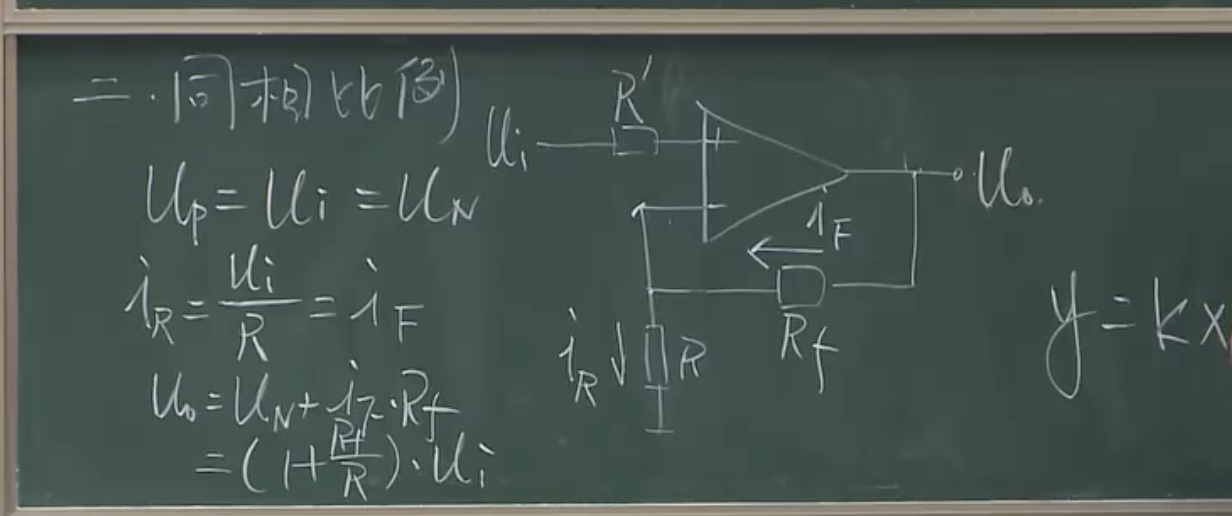 二.同相比例
Up=Ui=UN
iR=Ui/R=iF
Uo=UN+iF·Rf
=(1+Rf/R)·Ui
R'
Ui
+
-
Uo
iF
Rf
iR
R
y=kx